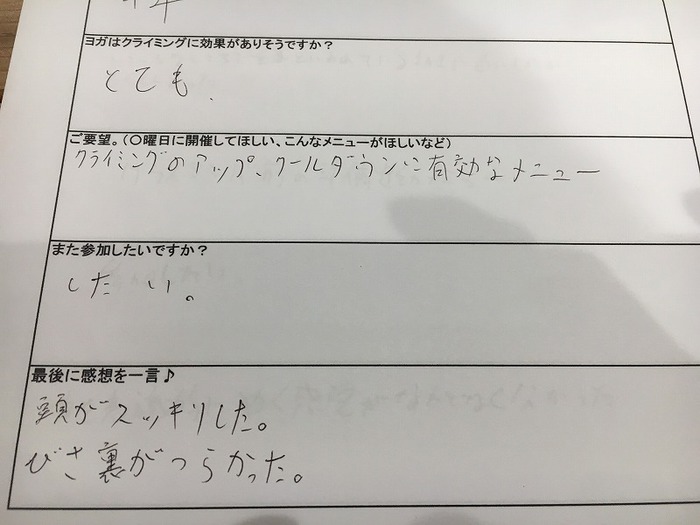 ヨガはクライミングに効果がありそうですか?
とても.
ご要望。(〇曜日に開催してほしい、こんなメニューがほしいなど)
クライミングのアップ、クールダウンに有効なメニュー
また参加したいですか?
したい。
最後に感想を一言♪
頭がスッキリした。
ひざ裏がつらかった。